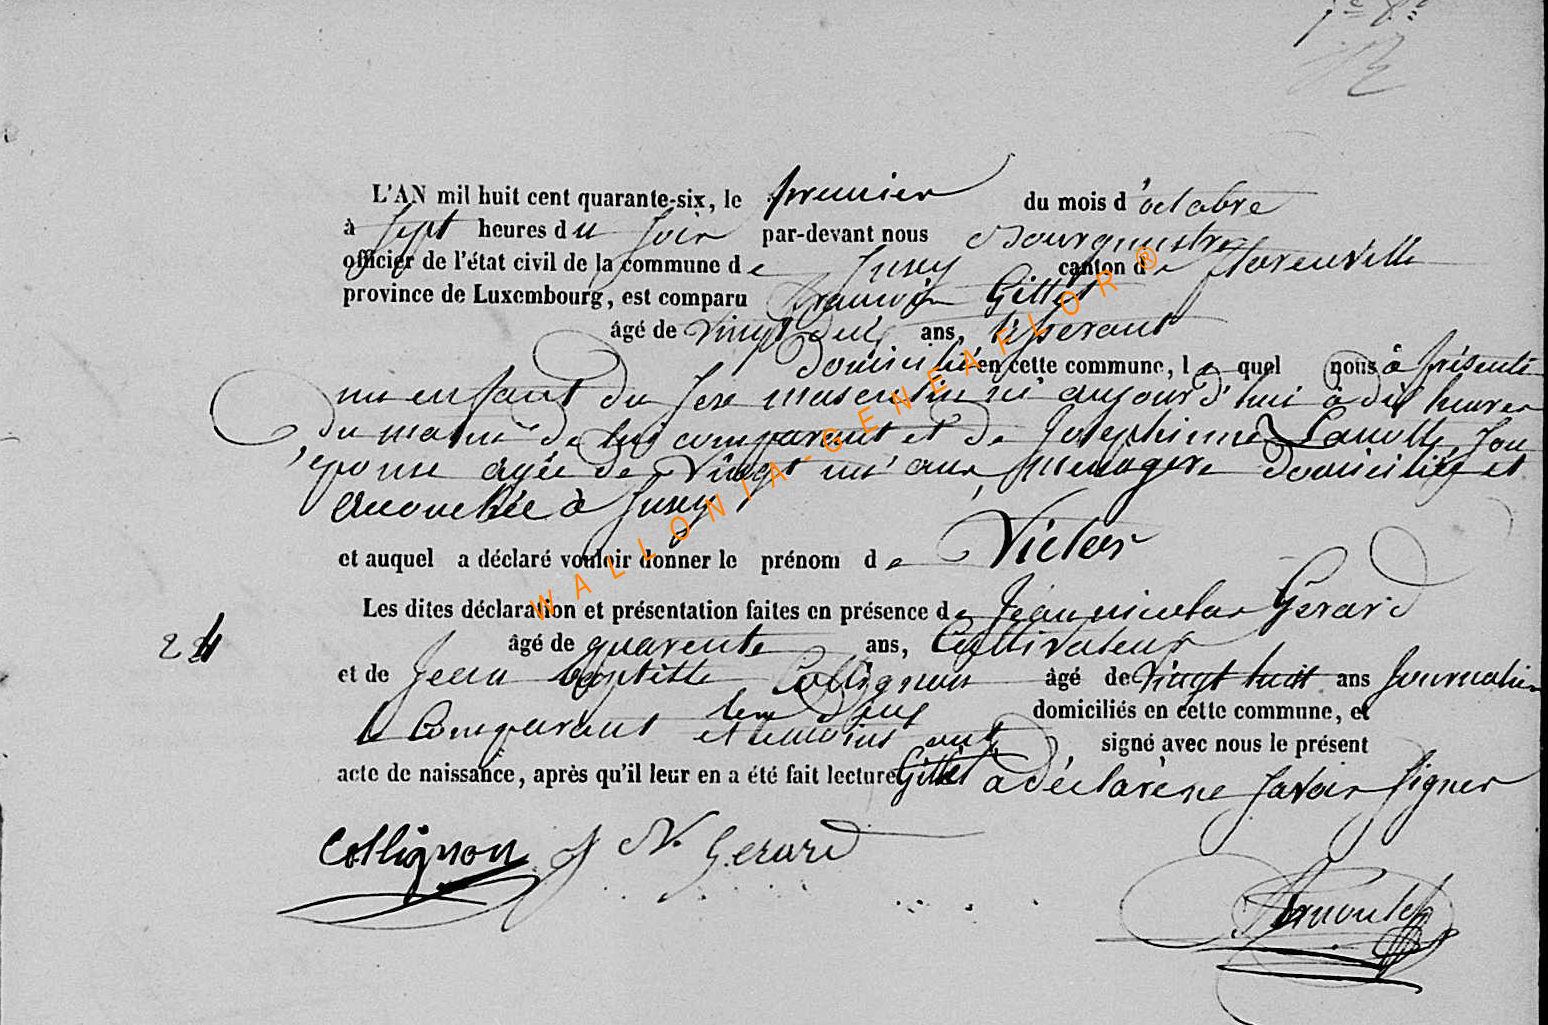 L'AN mil huit cent quarante-six, le premier du mois d'octobre
à Sept heures du Soir par-devant nous Bourguestre
officier de l'état civil de la commune de Jusey canton de florenville
province de Luxembourg, est comparu francois Gillet
âgé de vingt deux ans, tisserant
domicilié en cette commune, lequel nous a présenté
un enfant du sexe masculin né aujourd'hui à dix heures
du matin de lui comparant et de Josephinne Lanotte Son
épouse agée de Vingt un ans menagere domiciliée et
accouchée à Jusey
et auquel a déclaré vouloir donner le prénom de Victor
Les dites déclaration et présentation faites en présence de Jean nicolas Gerard
24 âgé de quarente ans, Cultivateur
et de Jean baptiste Collignon âgé de vingt huit ans Journalier
les deux domiciliés en cette commune, et
le Comparant et temoins ont signé avec nous le présent
acte de naissance, après qu'il leur en a été fait lecture Gillet a déclaré ne Savoir Signer
Collignon J N. Gerard
Arnould
WALLONIA-GENEAFLOR®